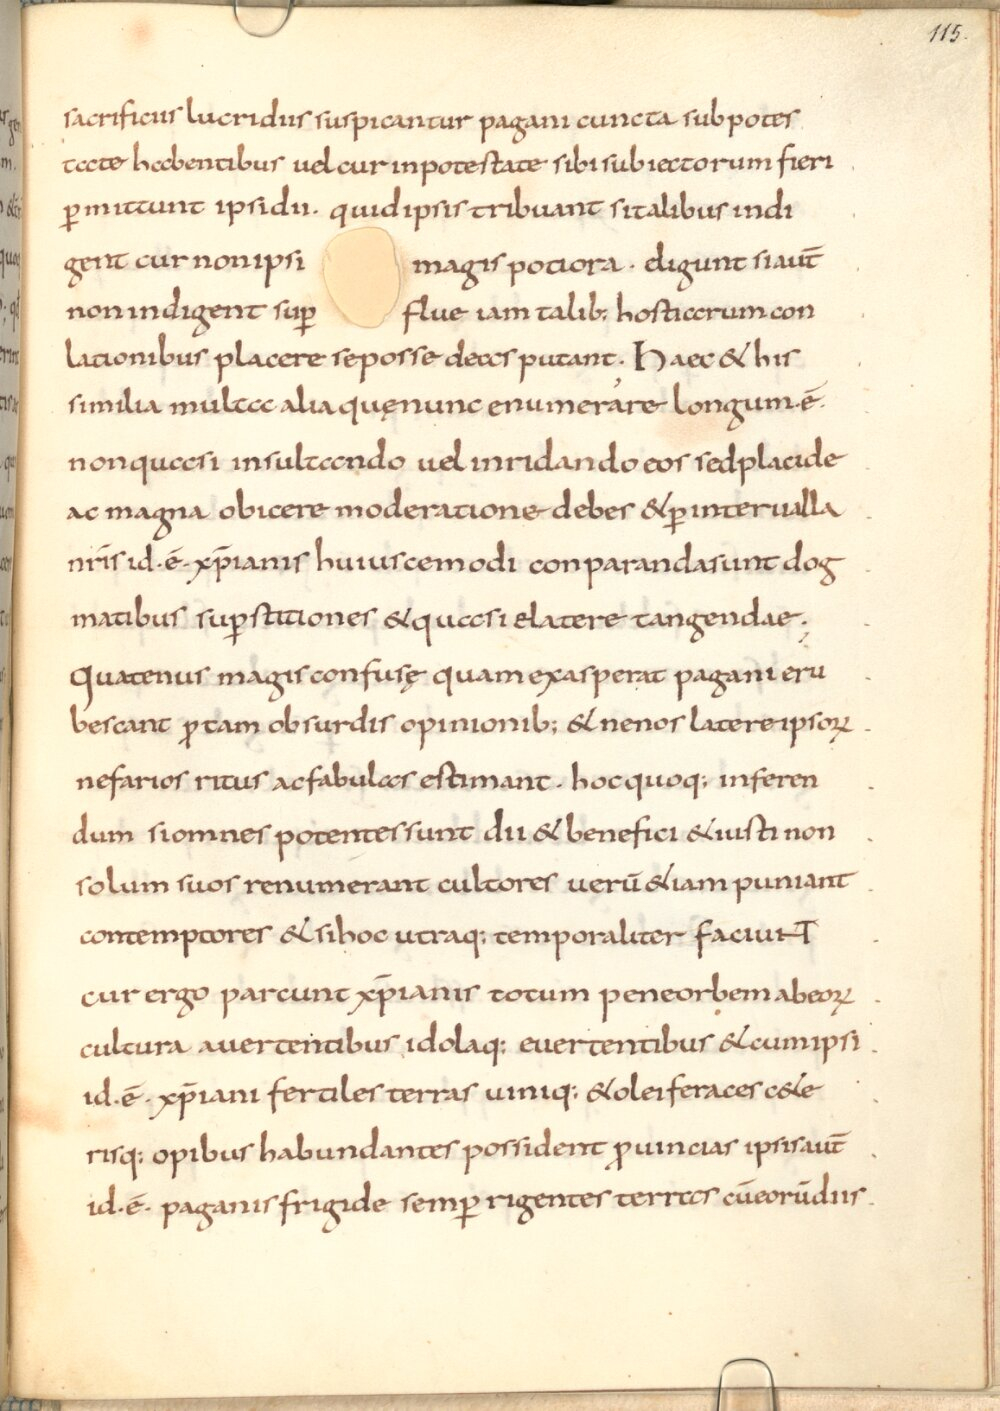 115.
sacrificiis lucridiis suspicantur pagani cuncta sub potes
tate habentibus vel cur in potestate sibi subiectorum fieri
p̄mittunt ipsi dii. quid ipsis tribuant si talibus indi
gent cur non ipsi magis potiora. digunt si aut̄
non indigent sup̄ flue iam talib; hostiarum con
lationibus placere se posse deas putant. Haec & his
similia multa alia quę nunc enumerare longum.ē.
non quasi insultando vel inridando eos sed placide
ac magna obicere moderatione debes & p̄ intervalla
nr̄is id.ē. xp̄ianis huiuscemodi conparanda sunt dog
matibus sup̄stitiones & quasi e latere tangendae.
Quatenus magis confusę quam exasperat pagani eru
bescant p̄ tam obsurdis opinionib; & ne nos latere ipsoꝝ
nefarios ritus ac fabulas estimant. hoc quoq; inferen
dum si omnes potentes sunt dii & benefici & iusti non
solum suos renumerant cultores verū &iam puniant
contemptores & si hoc utraq; temporaliter faciuNT
cur ergo parcunt xp̄ianis totum pene orbem ab eoꝝ
cultura avertentibus idolaq; evertentibus & cum ipsi
id.ē. xp̄iani fertiles terras viniq; & olei feraces c&e
risq; opibus habundantes possident p̄vincias ipsis aut̄
id.ē. paganis frigide semp̄ rigentes terras cū eorū diis